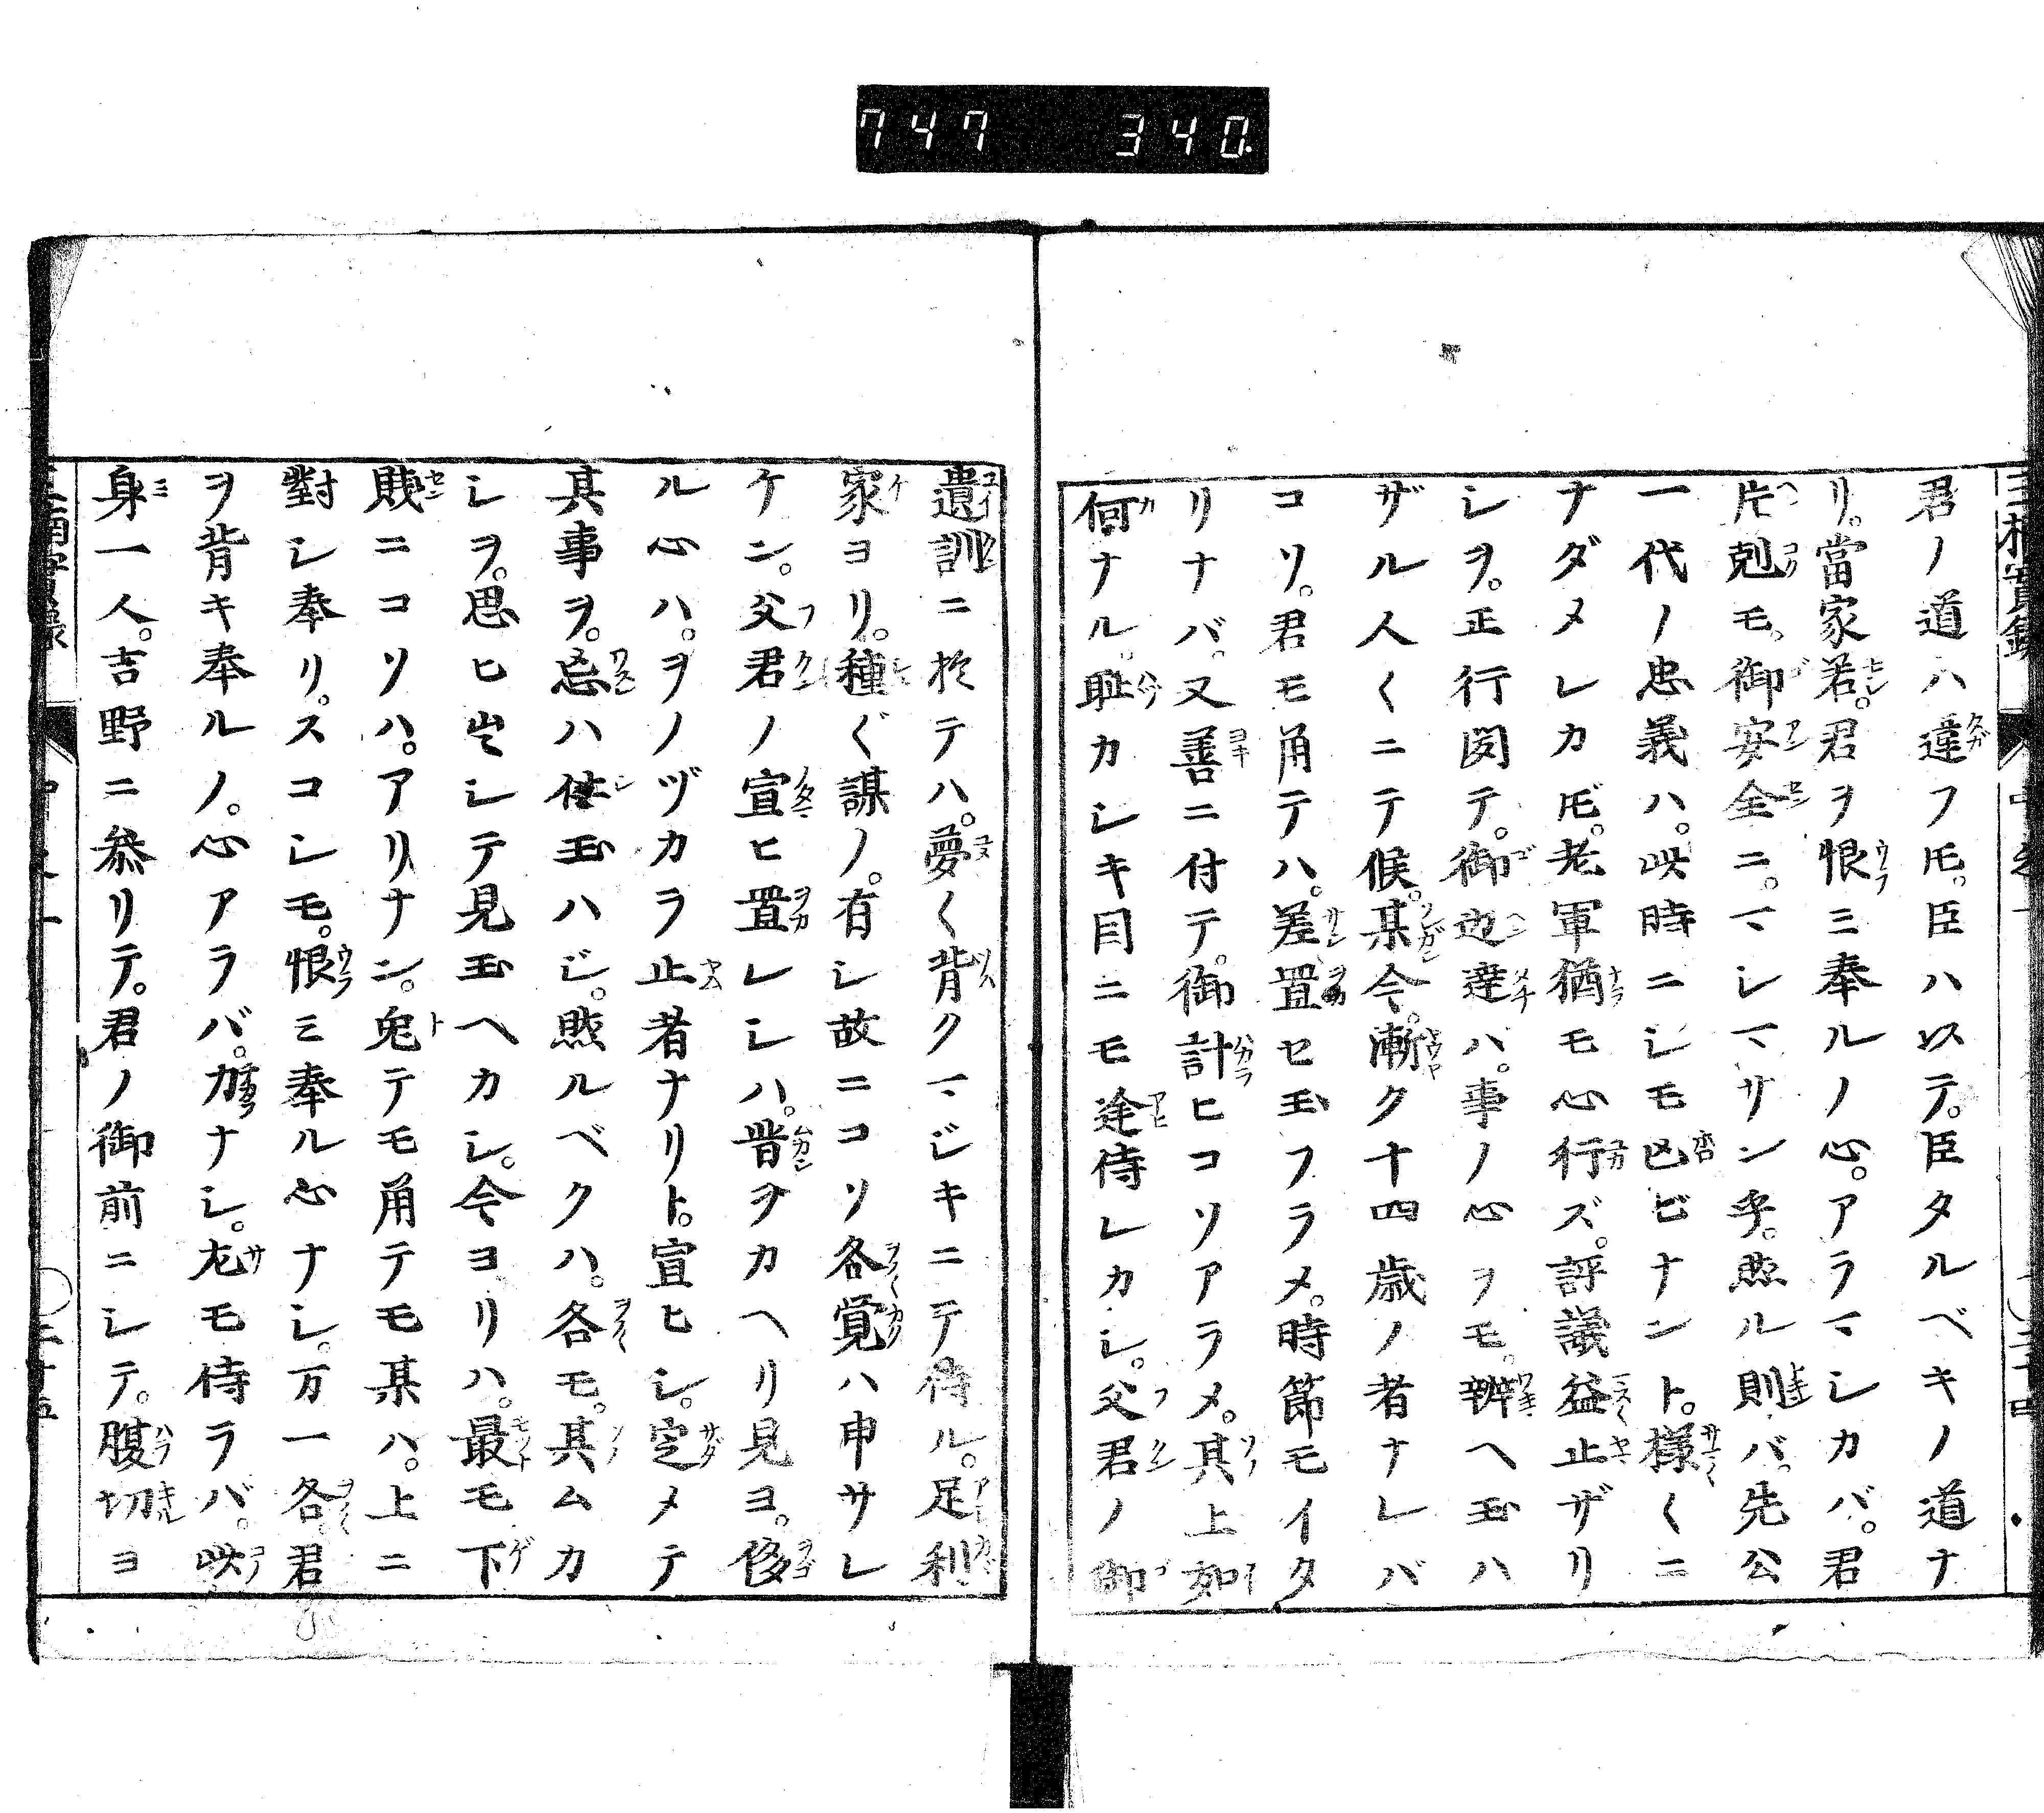 747 340.
君ノ道ハ違フ𪜈。臣ハ以テ。臣タルベキノ道ナ
リ。當家若。君ヲ恨ミ奉ルノ心。アラマシカバ。君
片剋モ。御安全ニ。マシマサン乎。然ル則バ。先公
一代ノ忠義ハ。此時ニシモ亡ビナント。様〱ニ
ナダメレカ𪜈。老軍猶モ心行ズ。評議益止ザリ
シヲ。正行図テ。御辺達ハ。事ノ心ヲモ。辨ヘ玉ハ
ザル人〱ニテ候。某今。漸ク十四歳ノ者ナレバ
コソ。君モ角テハ。差置セ玉フラメ。時節モイタ
リナバ。又善ニ付テ。御計ヒコソアラメ。其上如
何ナル。耻カシキ目ニモ逢侍レカシ。父君ノ御
遺訓ニ於テハ。夢〱背クマジキニテ侍ル。足利
家ヨリ。種〲謀ノ。有シ故ニコソ各覚ハ申サレ
ケン。父君ノ宣ヒ置レシハ。昔ヲカヘリ見ヨ。侈
ル心ハ。ヲノヅカラ止者ナリト。宣ヒシ。定メテ
其事ヲ。忘ハ仕玉ハジ。然ルベクハ。各モ。其ムカ
シヲ。思ヒ出シテ見玉ヘカシ。今ヨリハ。最モ下
賎ニコソハ。アリナン。兎テモ角テモ某ハ。上ニ
對シ奉リ。スコシモ。恨ミ奉ル心ナシ。万一各君
ヲ背キ奉ルノ。心アラバ。力ナシ。左モ侍ラバ。此
身一人。吉野ニ参リテ。君ノ御前ニシテ。腹切ヨ